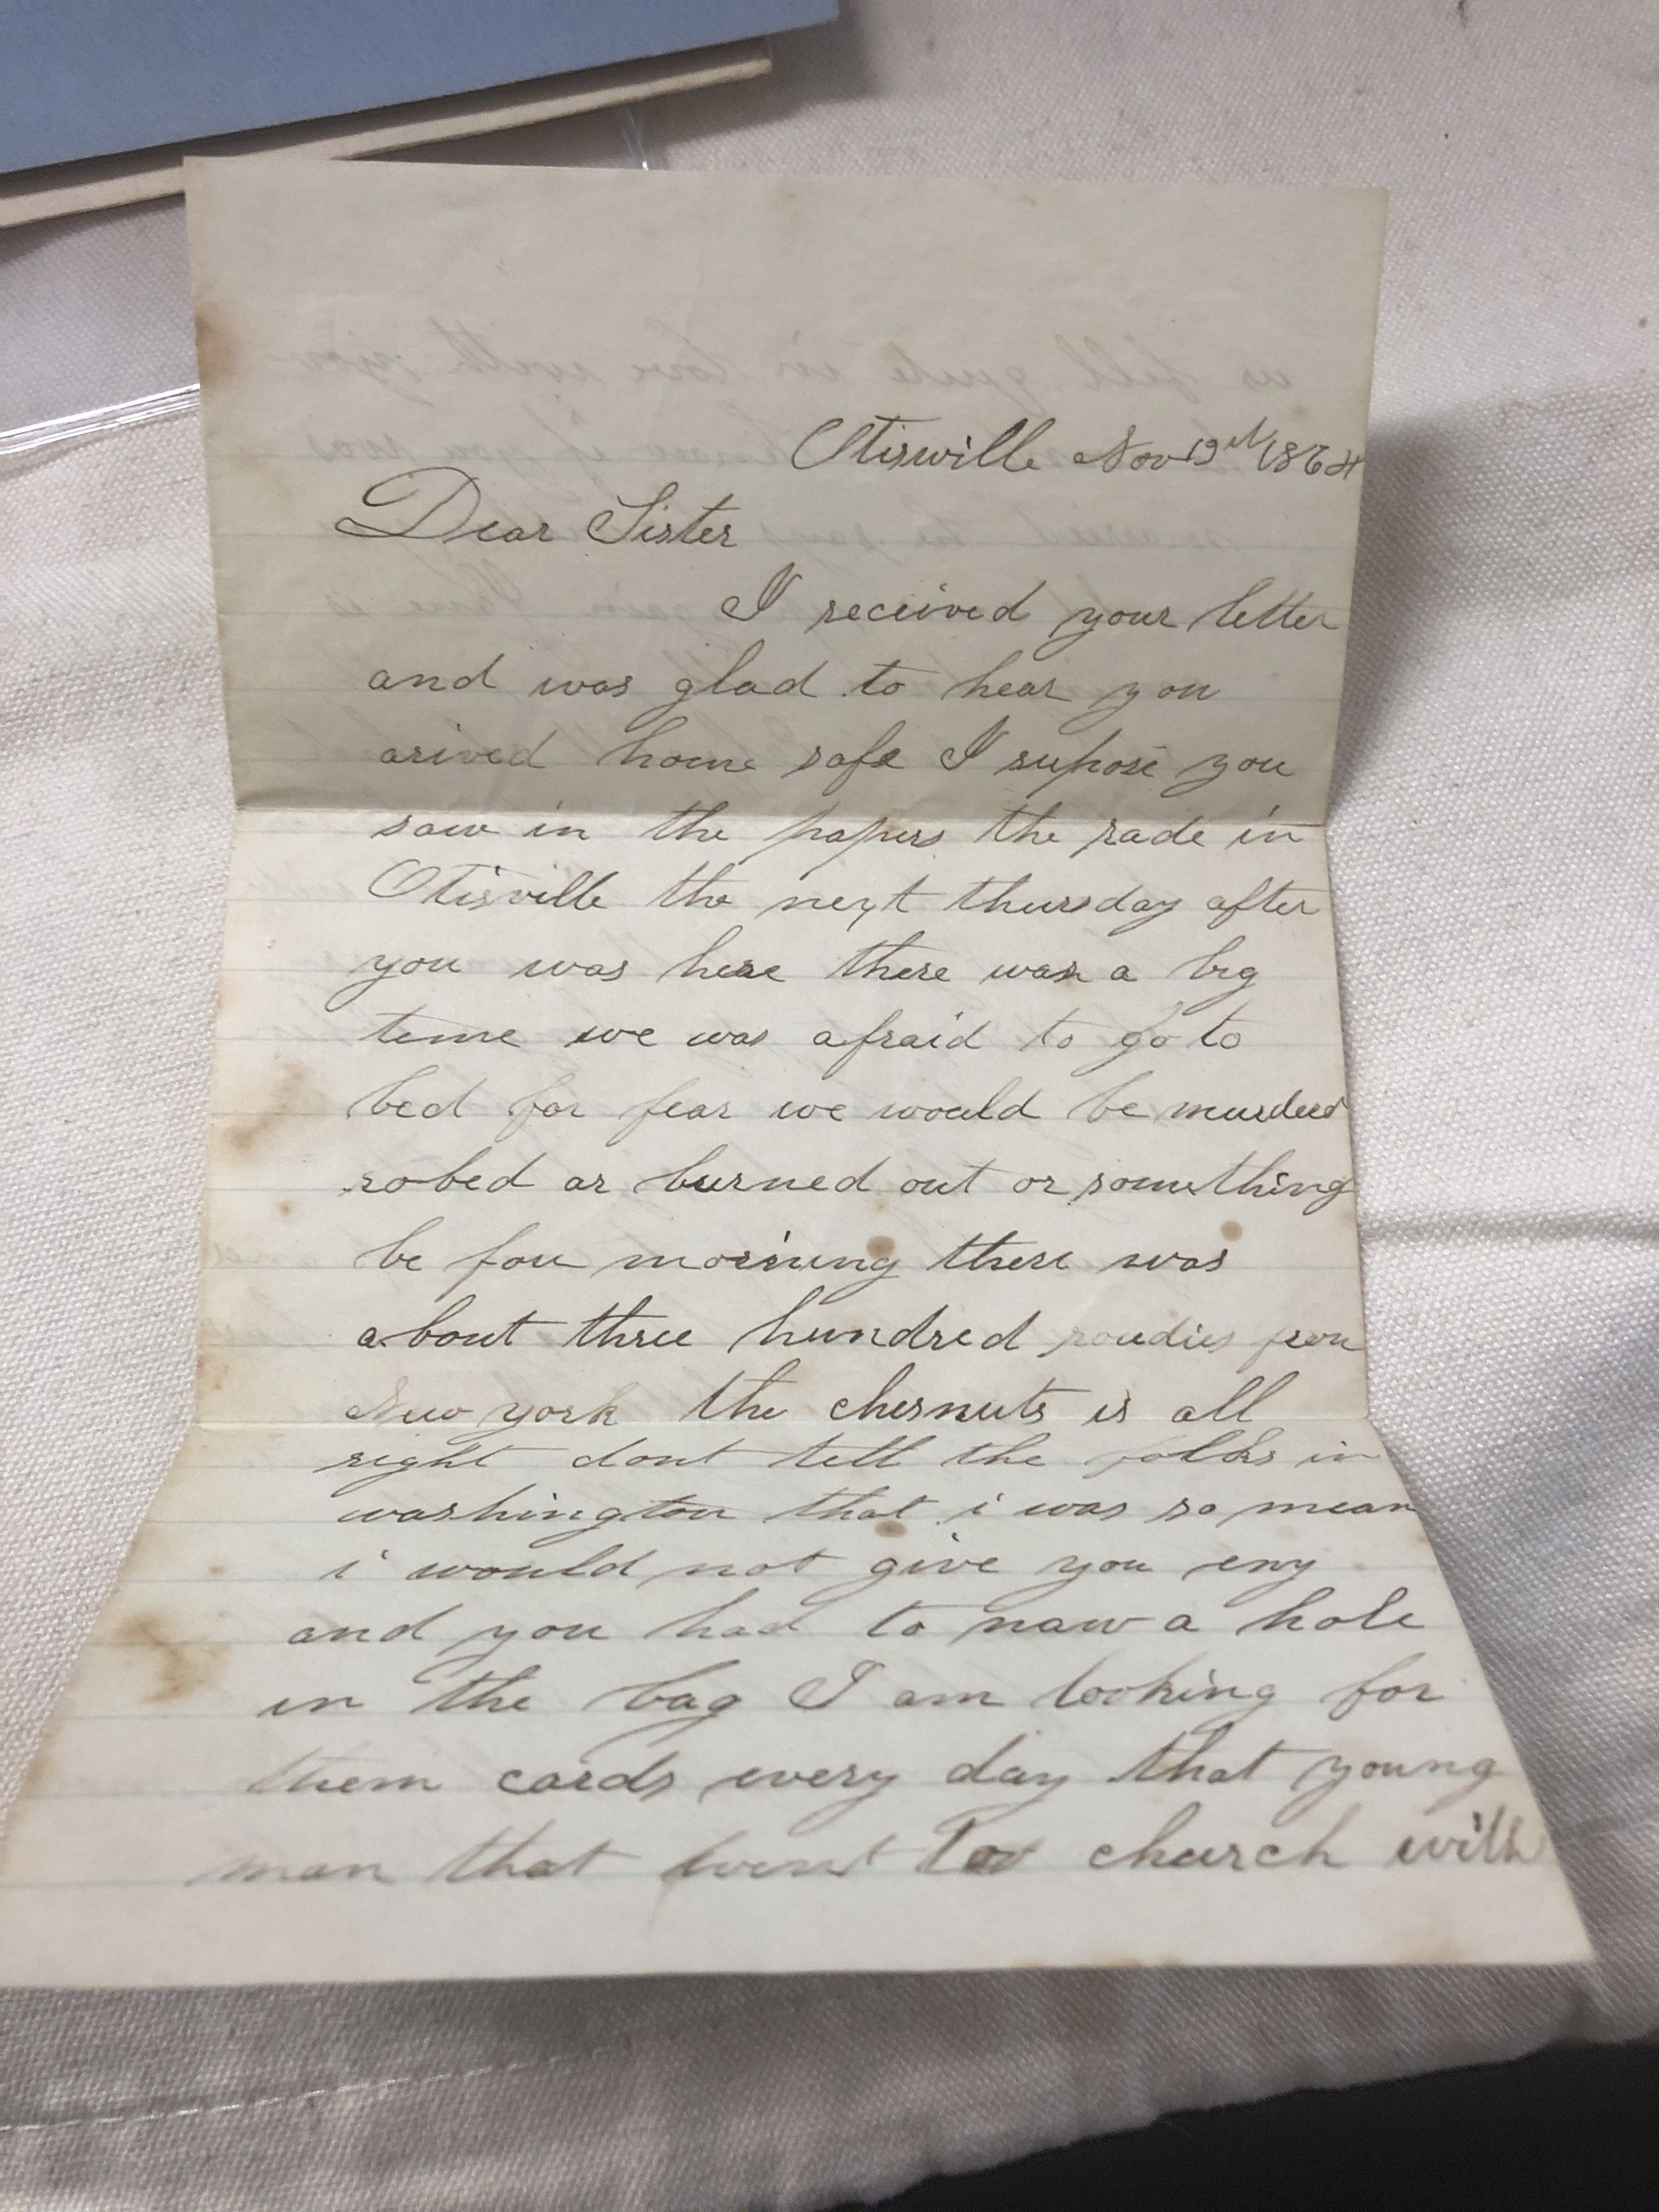 Otisville Nov 19th 1864
Dear Sister
I received your letter
and was glad to hear you
arived home safe I supose you
saw in the papers the rade in
Otisville the next thursday after
you was here there was a big
teme we was afraid to go to
bed for fear we would be murdeed
robed or burned out or something
be fou morning there was
about three hundred roudies from
New york the chesnuts is all
right dont tell the folks in
washington that i was so mean
i would not give you eny
and you had to naw a hole
in the bag I am looking for
them cards every day that young
man that went to church with